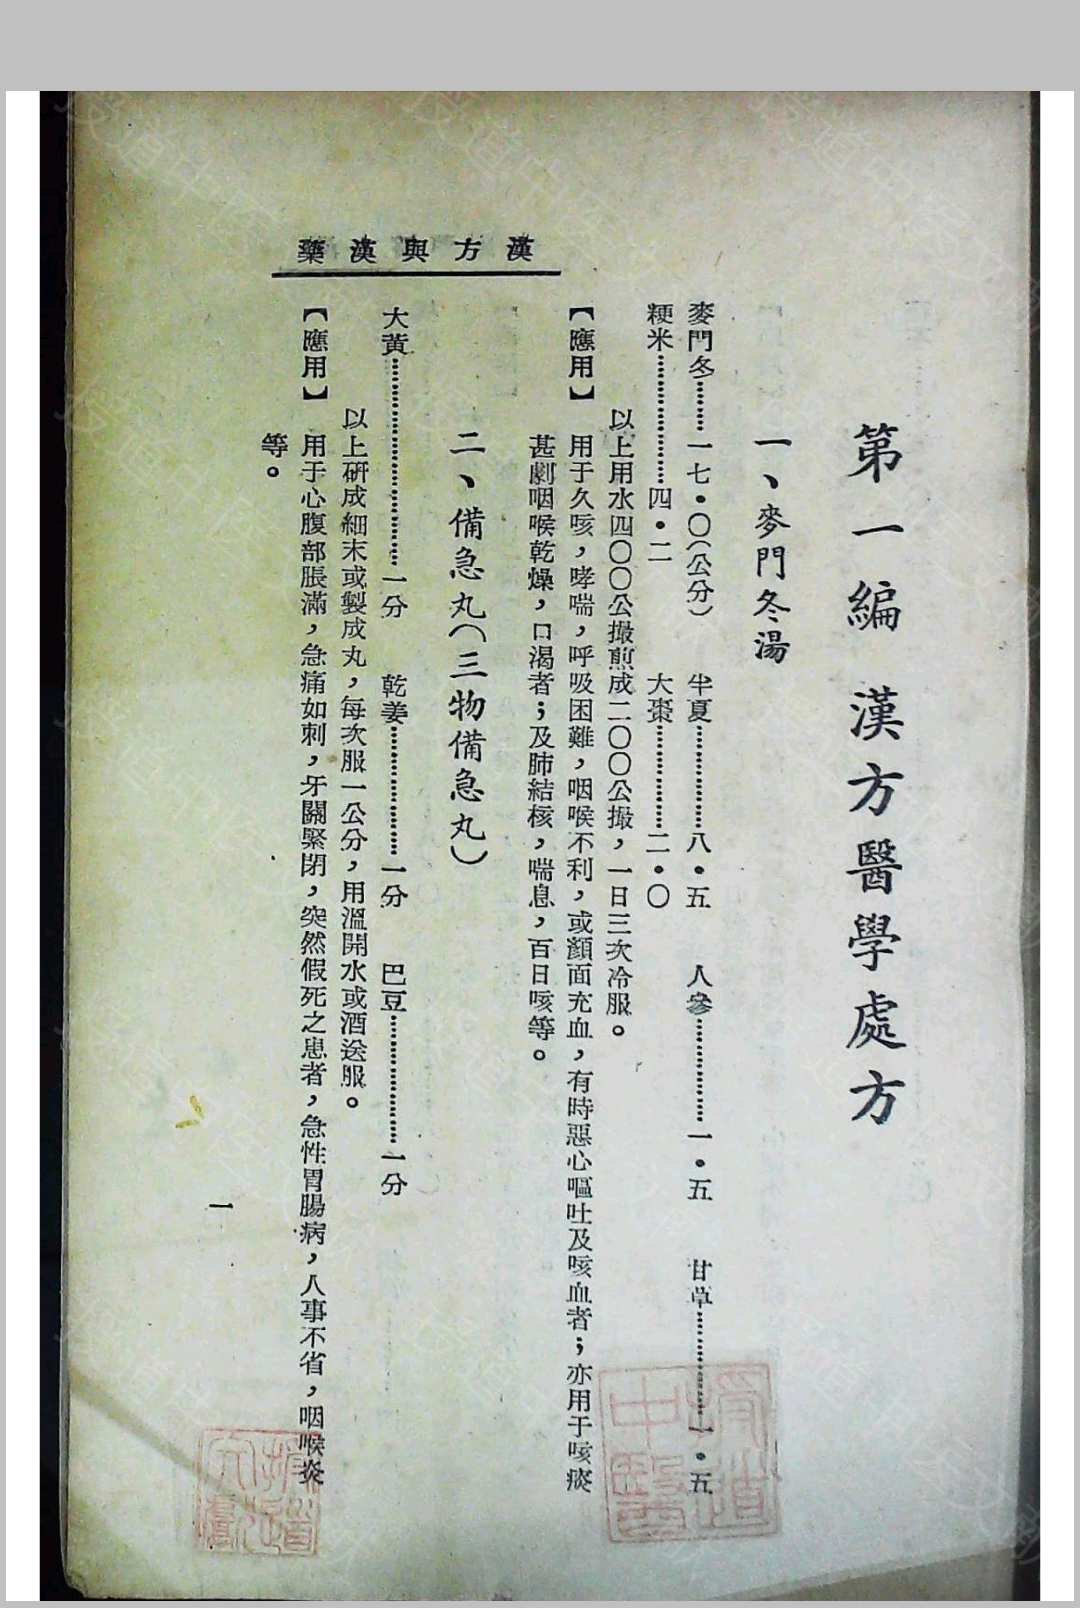 漢方與漢藥
第一編 漢方醫學處方
一、麥門冬湯
麥門冬………一七・〇(公分) 半夏………八・五 人參………一・五 甘草………一・五
粳米………四・二 大棗………二・〇
以上用水四〇〇公撮煎成二〇〇公撮，一日三次冷服。
【應用】 用于久咳，哮喘，呼吸困難，咽喉不利，或顏面充血，有時惡心嘔吐及咳血者；亦用于咳痰
甚劇咽喉乾燥，口渴者；及肺結核，喘息，百日咳等。
二、備急丸(三物備急丸)
大黃………一分 乾姜………一分 巴豆………一分
以上研成細末或製成丸，每次服一公分，用溫開水或酒送服。
【應用】 用于心腹部脹滿，急痛如刺，牙關緊閉，突然假死之患者，急性胃腸病，人事不省，咽喉炎
等。
一